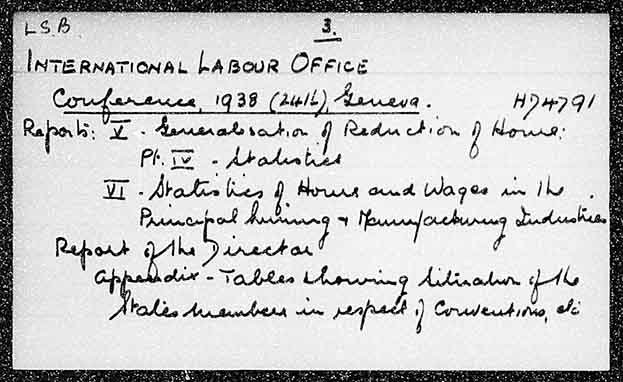 L.S.B. 3.
INTERNATIONAL LABOUR OFFICE
Conference, 1938 (24th), Geneva. HJ4791
Reports: V - Generalisation of Reduction of Hours:
Pt. IV - Statistics
VI - Statistics of Hours and Wages in the
Principal Mining & Manufacturing Industries
Report of the Director
Appendix - Tables showing Situation of the
States members in respect of Conventions, etc